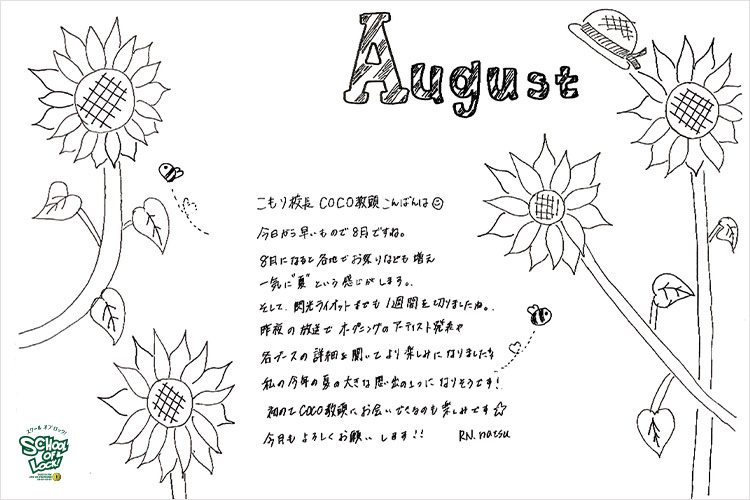 August
こもり校長 COCO教頭 こんばんは
今日から早いもので8月ですね。
8月になると各地でお祭りなども増え
一気に"夏"という感じがします。
そして、閃光ライオットまでも1週間を切りましたね。
昨夜の放送でオープニングのアーティスト発表や
各ブースの詳細を聞いてより楽しみになりました
私の今年の夏の大きな思い出の1つになりそうです!
初めてCOCO教頭にお会いできるのも楽しみです☆
今日もよろしくお願いします!! RN.natsu
スクール オブ ロック!
SCHOOL
OF
LOCK!